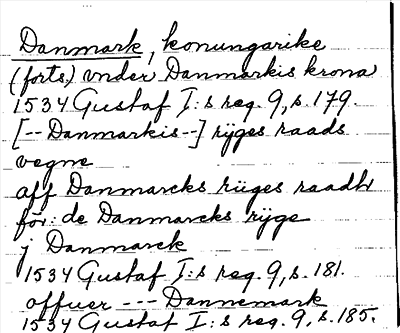 Danmark, konungarike
(forts) vnder Danmarkis krona
1534 Gustaf I:s reg. 9, s. 179.
[--Danmarkis--] rÿges raads
vegne
aff Danmarcks rüges raadh
för: de Danmarcks rÿge
j Danmarck
1534 Gustaf I:s reg. 9, s. 181.
offuer --- Dannemark
1534 Gustaf I:s reg. 9, s. 185.